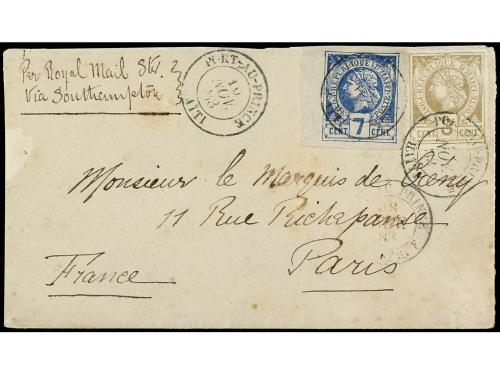 Per Royal Mail Str.
Via Southampton
PORT-AU-PRINCE
10
NOV
83
HAITI
REPUBLIQUE D'HAITI
7
CENT CENT
3
CENT CENT
Monsieur le Marquis de
11 Rue Richepanse
Paris
France